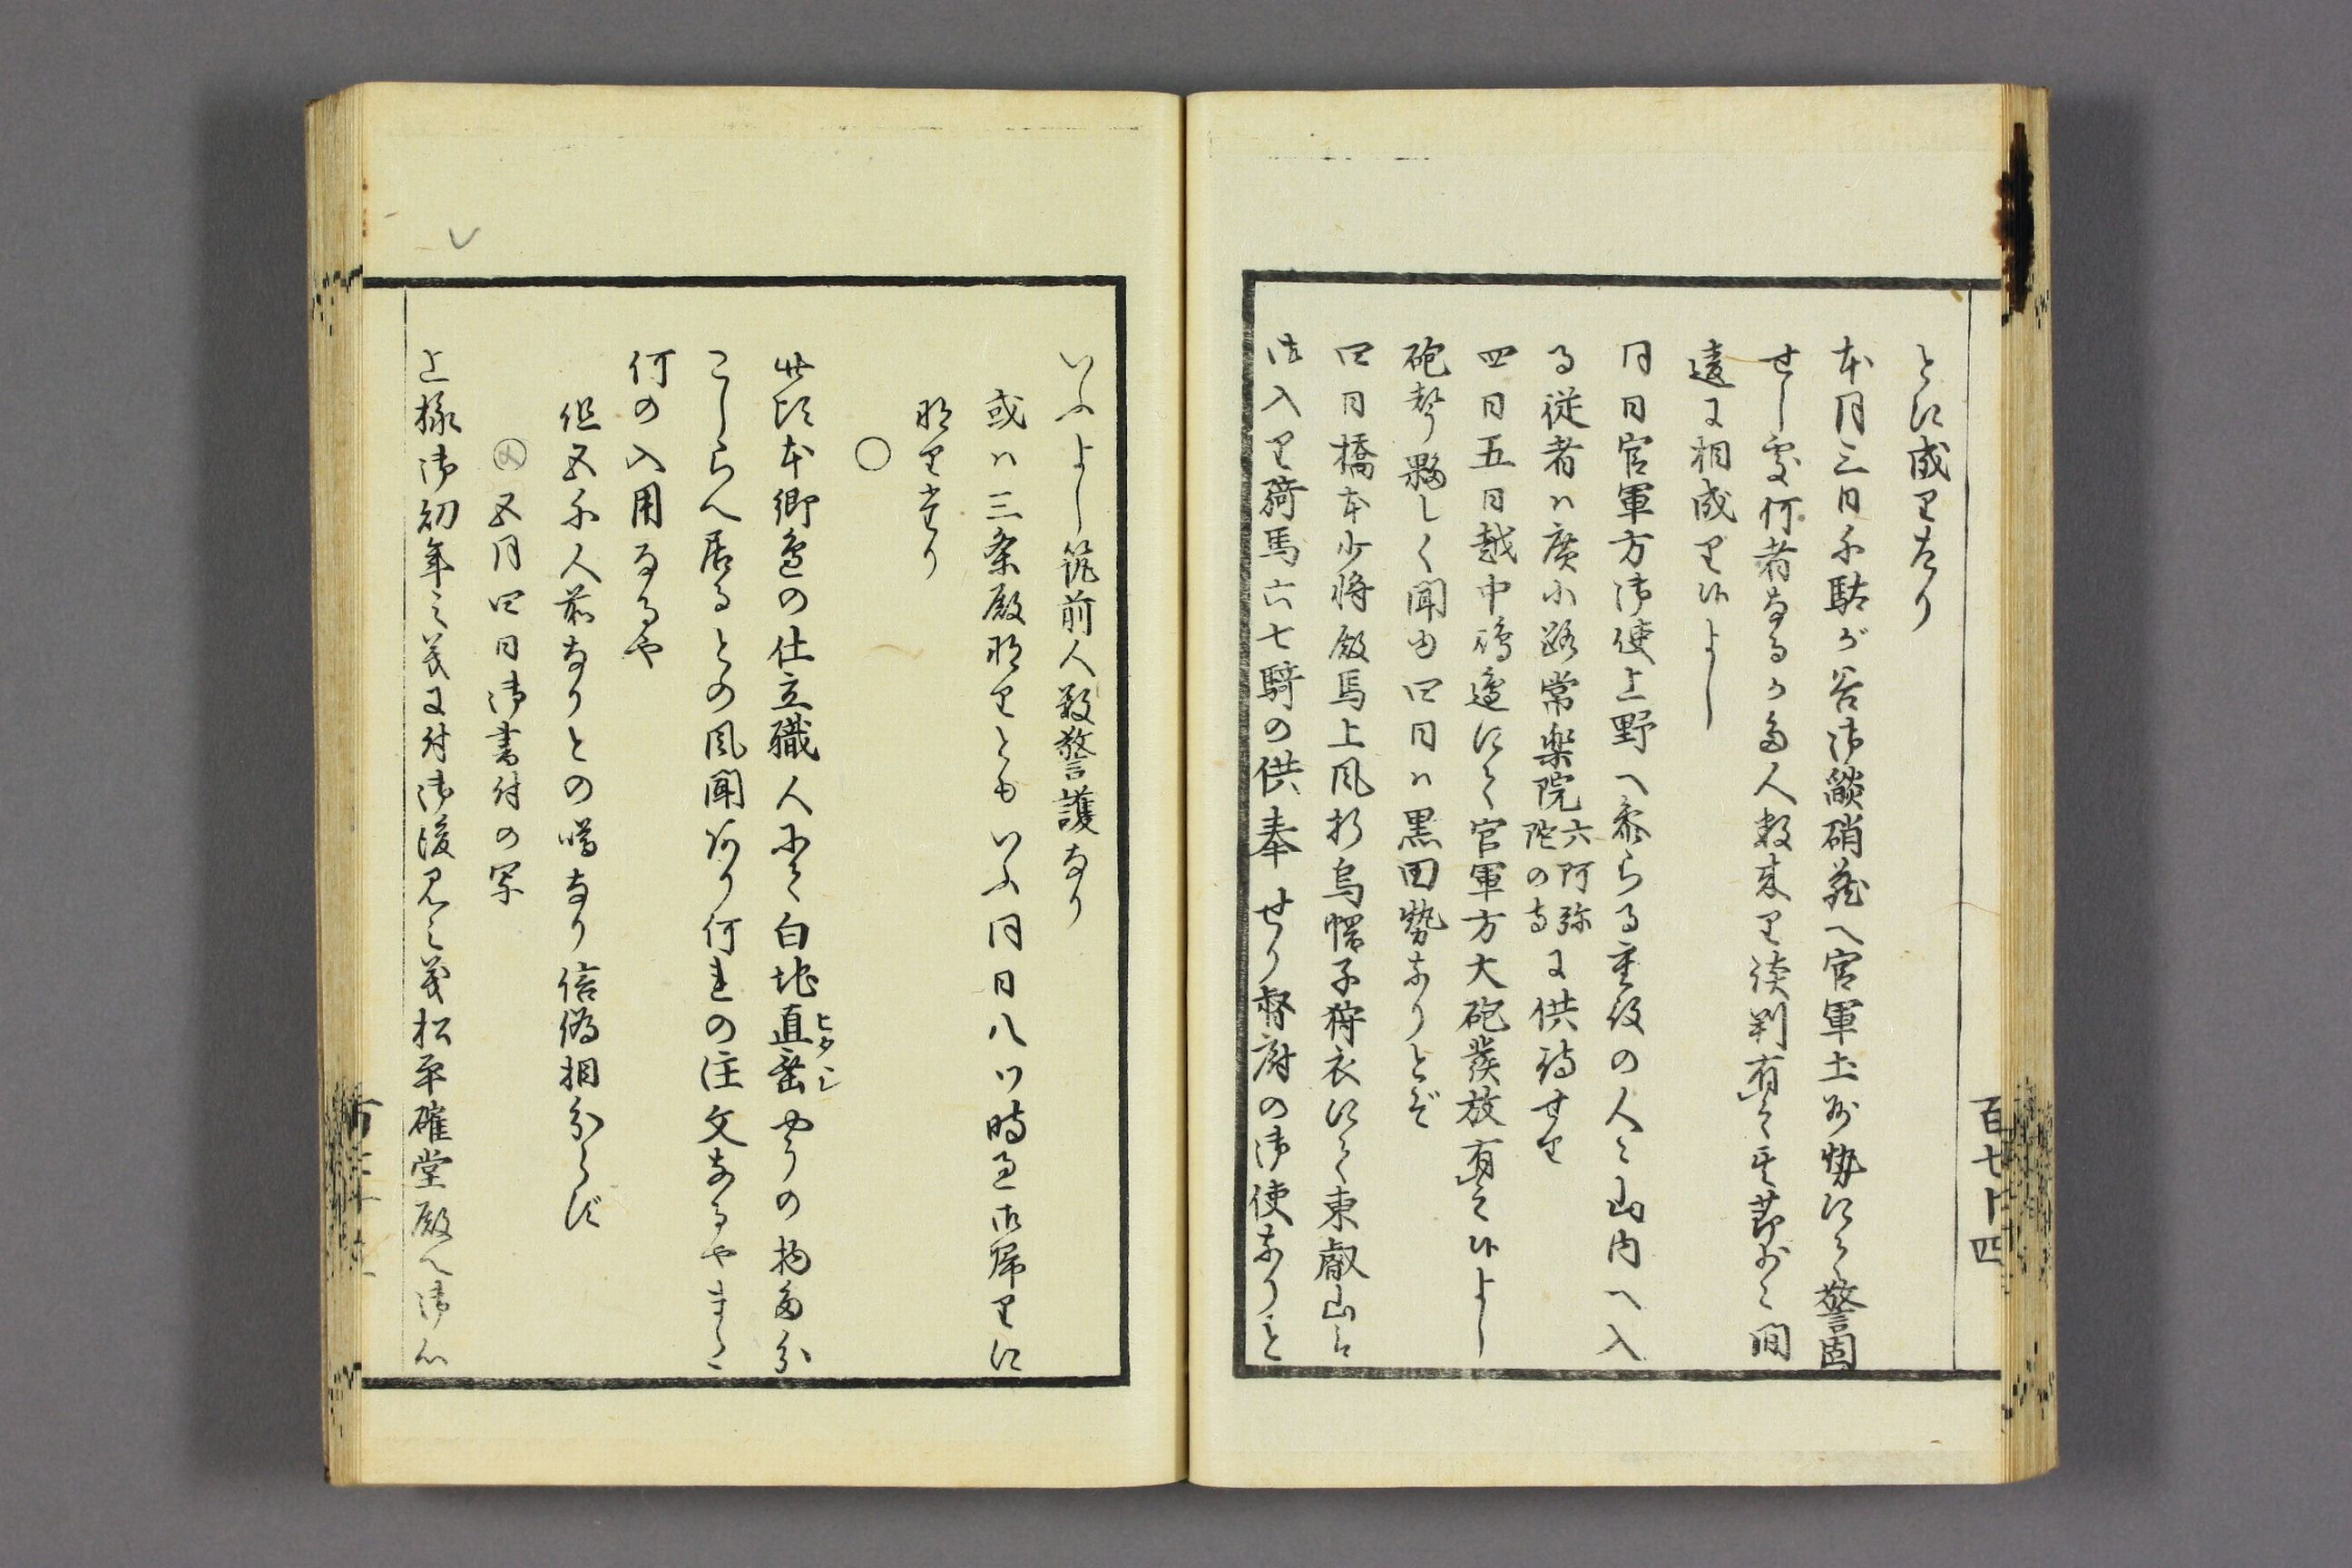 とに成りたり
本月三日千駄ヶ谷御焔硝蔵へ官軍土州勢にて警固
せし處何者なるか多人数来り談判有之其節少々間
違に相成り候よし
同日官軍方御使上野へ参らる重役の人々山内へ入
る従者ハ廣小路常楽院六阿弥陀の寺に供待せり
四日五日越中嶋邉にて官軍方大砲発放有之候よし
砲聲夥しく聞ゆ四日ハ黒田勢なりとぞ
四日橋本少将殿馬上風折烏帽子狩衣にて東叡山に
御入り騎馬六七騎の供奉せり督府の御使なりと
百七十四
いふよし筑前人数警護なり
或ハ三条殿なりともいふ同日八ツ時過御帰りに
なりたり
○
此頃本郷邉の仕立職人にて白地直垂ヒタヽレやうの物多分
こしらへ居るとの風聞あり何れの注文なるやまた
何の入用なるや
但五千人前なりとの噂なり信偽相分らず
五月四日御書付の写
上様御幼年之義に付御後見之義松平確堂殿へ御心